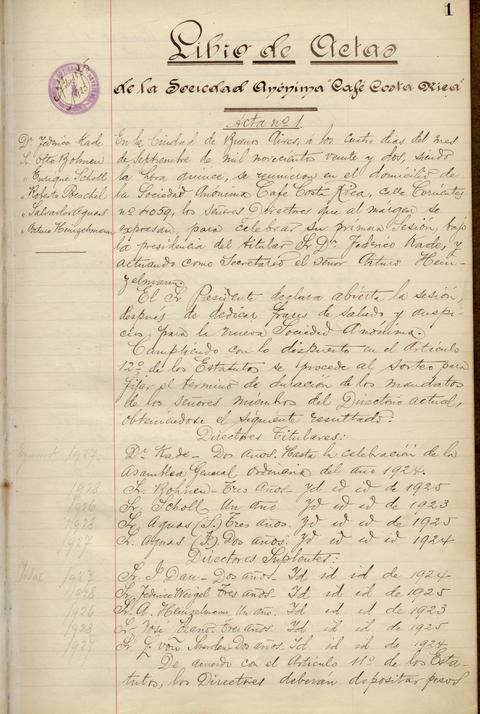 1
Libro de Actas
de la Sociedad Anónima "Café Costa Rica"
Acta nº 1.
Dr. Federico Kade
Sr. Otto Bohnen
" Enrique Scholl
" Roberto Pöschel
" Salvador Aguas
" Arturo Heinzelmann
En la Ciudad de Buenos Aires, á los cuatro dias del mes
de Septiembre de mil novecientos veinte y dos, siendo
la hora quince, se reunieron en el domicilio de
la Sociedad Anónima Café Costa Rica, calle Corrientes
nº 4059, los Señores Directores que al márgen se
expresan, para celebrar su primera Sesión, bajo
la presidencia del titular Sr. Dr. Federico Kade, y
actuando como Secretario el Señor Arturo Hein-
zelmann.
El Sr. Presidente declara abierta la sesión,
después de dedicar frases de saludo y auspi-
cios para la nueva Sociedad Anónima.
Cumpliendo con lo dispuesto en el Artículo
12º de los Estatutos se procede al Sorteo para
fijar el término de duración de los mandatos
de los señores miembros del Directorio actual,
obteniéndose el siguiente resultado:
Directores Titulares:
Dr. Kade - Dos años. Hasta la celebración de la
Asamblea General Ordinaria del año 1924.
Sr. Bohnen - Tres Años - Id id id de 1925
Sr. Scholl Un Año Id id id de 1923
Sr. Aguas (S.) Tres años. Id id id de 1925
Sr. Aguas (F.) Dos años: Id id id de 1924
Directores Suplentes:
Sr. J. Dau - Dos años. Id id id de 1924
Sr. Federico Weigel Tres años. Id id id de 1925
Sr. A. Heinzelmann Un año. Id id id de 1923
Sr. José Tres años. Id id id de 1925
Sr. L. von Dos años. Id id id de 1924
De, acuerdo con el Artículo 11º de los Esta-
tutos, los Directores deberán depositar pesos
1927
1928
1926
1928
1927
1927
1928
1926
1928
1927